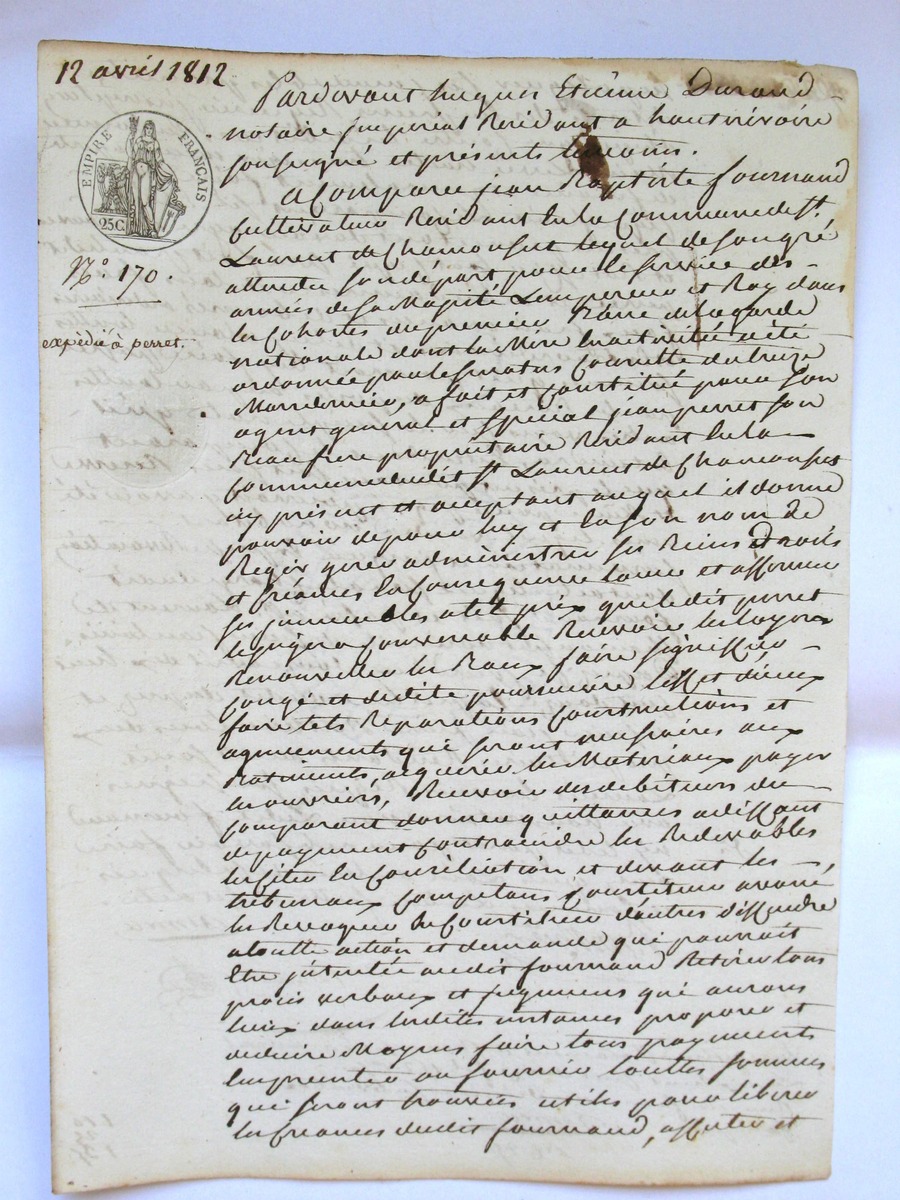 12 avril 1812
EMPIRE FRANÇAIS
25C
N.º 170.
expédié à perret.
Pardevant hugues Etiénne Durand
notaire jmpérial Résidant a hautrivoire
soussigné et présents témoins.
A Comparu jean Baptiste fournand
Cultivateur Résidant en la Commune de St.
Laurent de Chamousset lequel de son gré
attendu son départ pour le service des
armées de sa Majesté Lempereur et Roy dans
les Cohortes du premier Ban de la garde
nationale dont la Mise En activité a été
ordonnée par le senatus Consulte du treize
Mars dernier, a fait et Constitué pour son
agent général et spécial jean perret son
Beau frere propriétaire Résidant en la
Commune dudit St. Laurent de Chamousset
icy présent et acceptant auquel il donne
pouvoir de pour luy et En son nom de
Regir gerer administrer ses Biens droits
et Créances En Consequence louer et affermer
ses jmmeubles a tel prix que ledit perret
jugera Convenable Recevoir les loyers
Renouveller les Baux faire signiffier
Congé et dedite poursuivre lesset dieux
faire tels Reparations Constructions et
agencements qui seront necessaires aux
Batiments, acquerir les Materiaux payer
les ouvriers, Recevoir des debiteurs du
Comparant donner quittances a deffaut
de payement Contraindre les Redevables
les Citer En Conciliation et devant les
tribunaux Competans Constituer avoué
les Revoquer En Constituer d'autres deffendre
a toutte action et demande qui pourrait
Etre jntentée audit fournand Retirer tous
procès verbaux et jugemens qui auront
lieux dans lesdites instances proposer et
deduire Moyens faire tous payements
Emprunter ou fournir touttes sommes
qui seront trouvées utiles pour liberer
les Creances dudit fournand, assister et